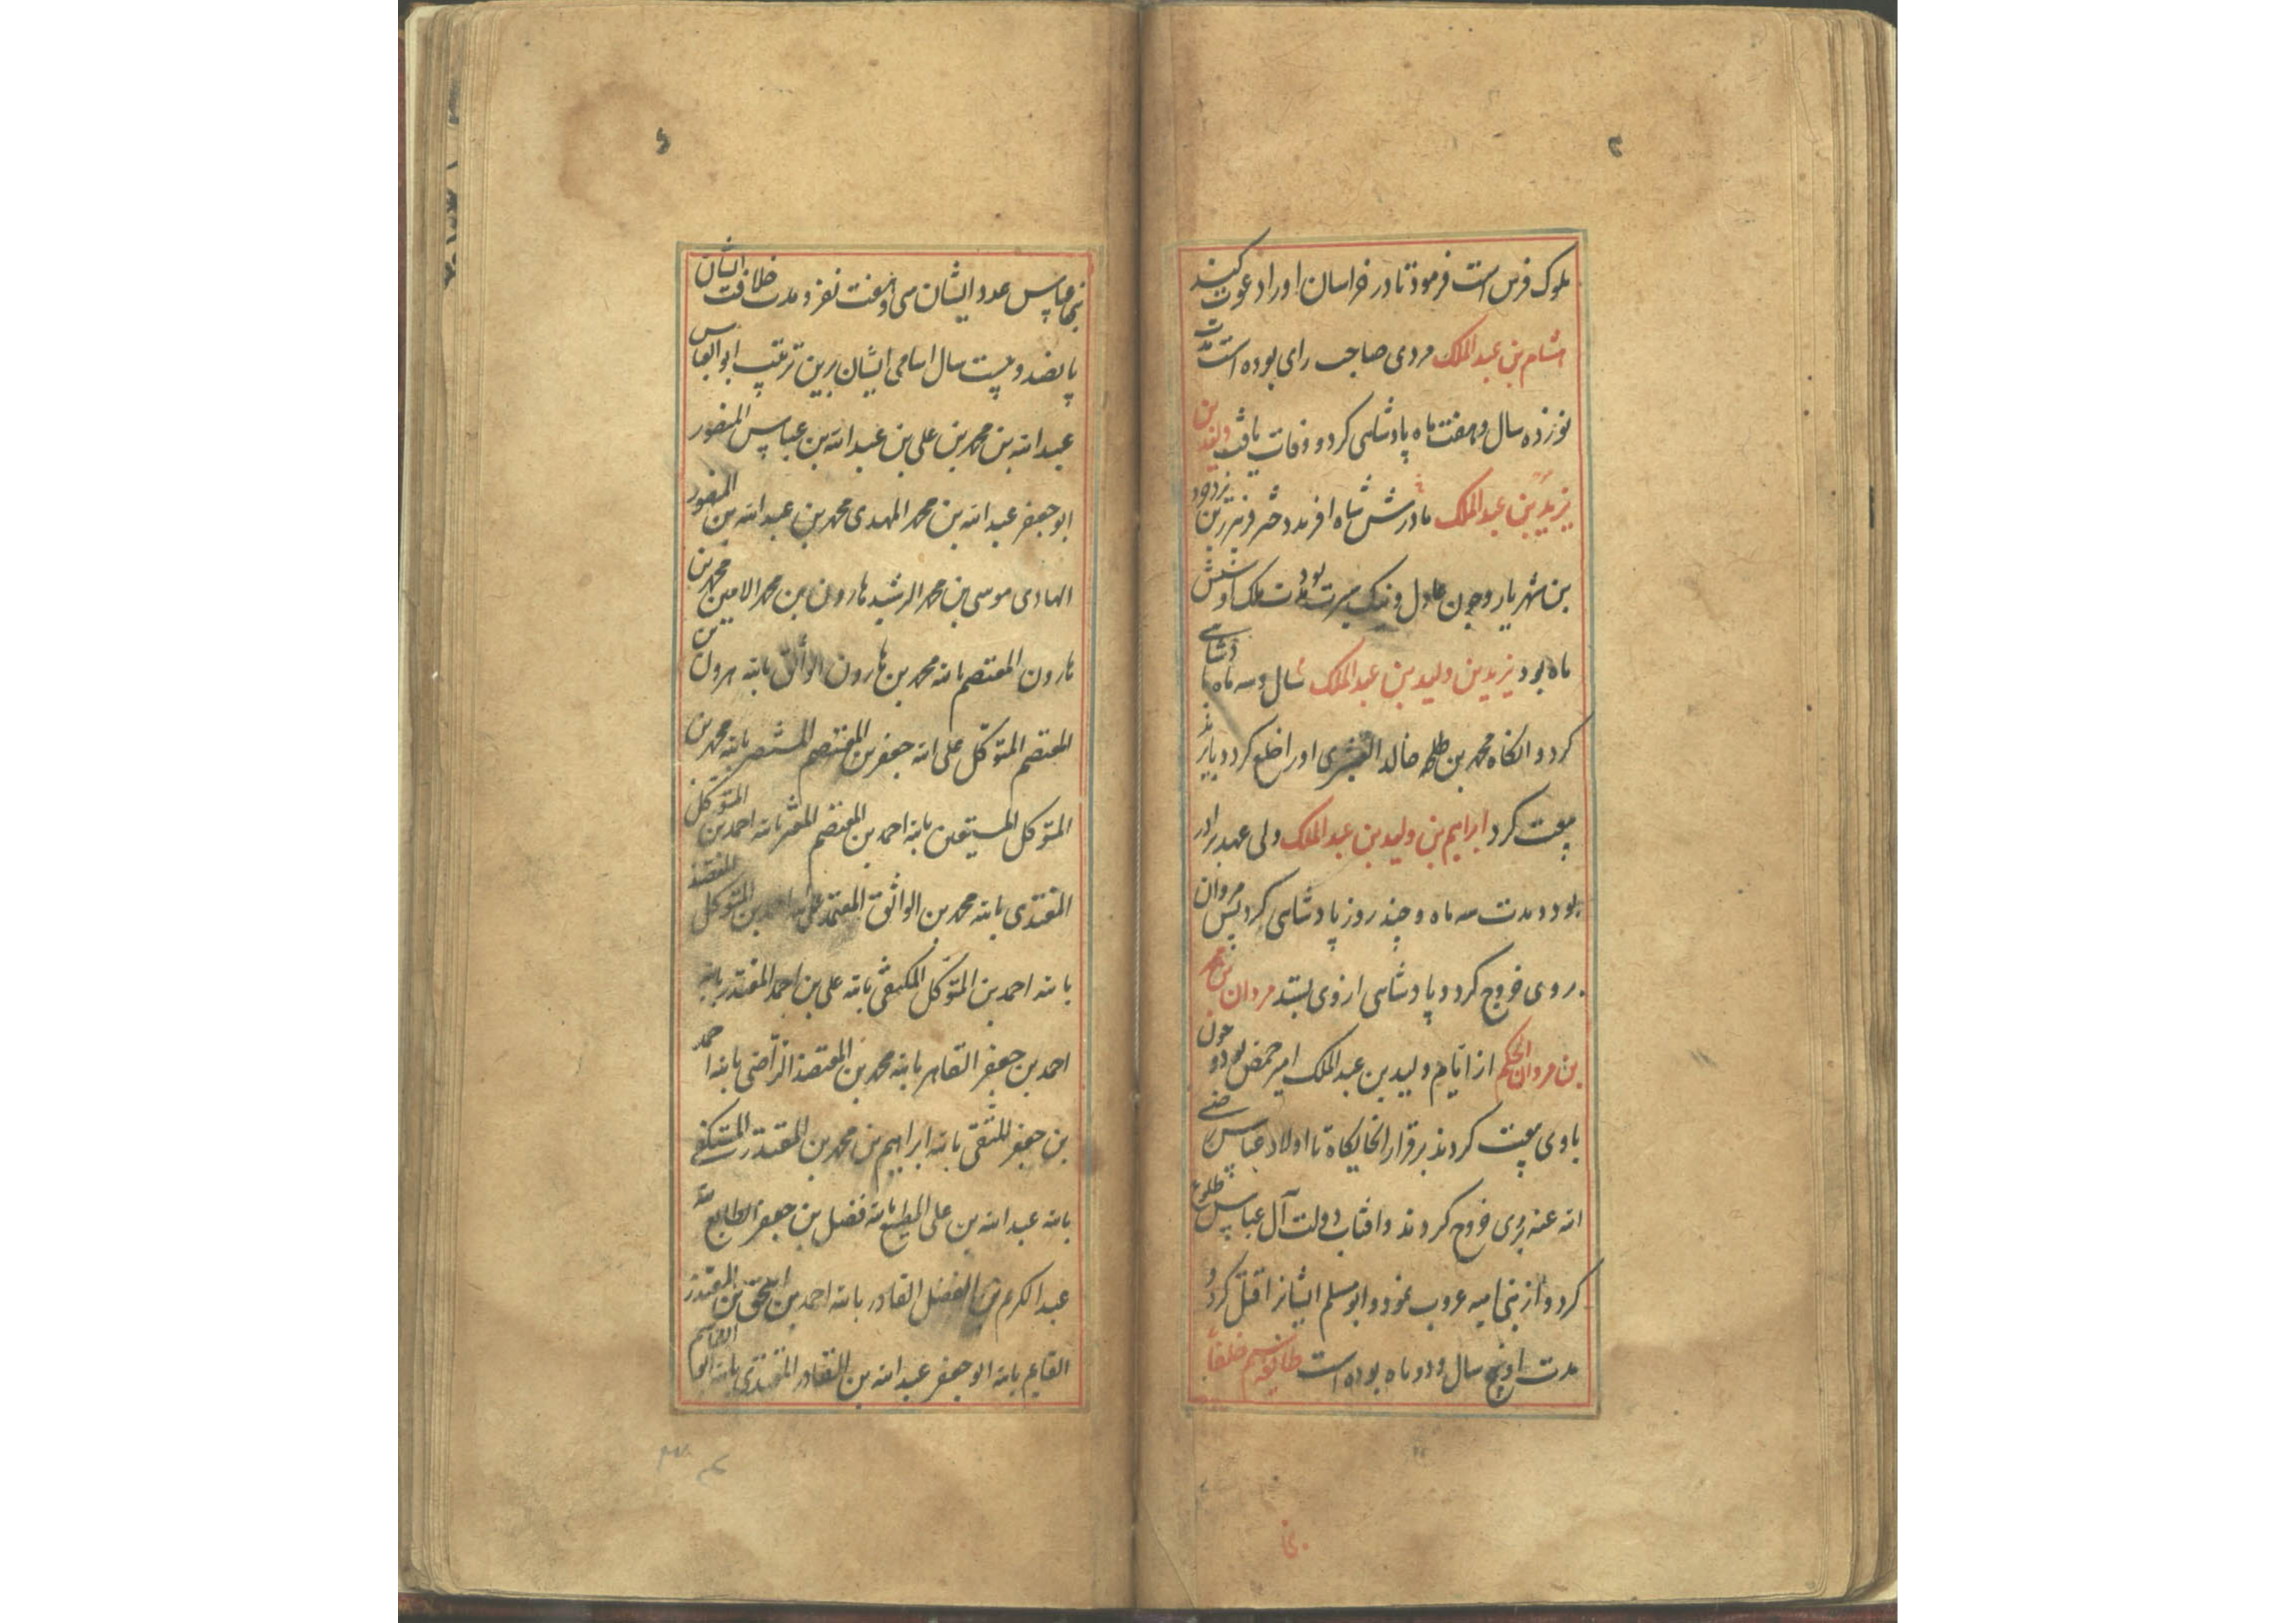 ملوک فرس است فرمود تا در خراسان او را دعوت کنند
هشام بن عبدالملک مردی صاحب رای بوده است مدت
نوزده سال و هفت ماه پادشاهی کرد و وفات یافت ولید بن
یزید بن عبدالملک مادرش شاه افرند دختر فیروز بن یزدجرد
بن شهریار و چون عادل و نیک سیرت بود مدت ملک او شش
ماه بود یزید بن ولید بن عبدالملک سال و سه ماه پادشاهی
کرد و انکاه محمد بن خالد القسری او را خلع کرد و با
بیعت کرد ابراهیم بن ولید بن عبدالملک ولی عهد برادر
بود و مدت سه ماه و چند روز پادشاهی کرد پس مروان
بروی خروج کرد و پادشاهی از وی بستد مروان بن محمد
بن مروان الحکم از ایام ولید بن عبدالملک امیر حمص بود و چون
با وی بیعت کردند برقرار انجایکاه تا اولاد عباس رضی
الله عنه بروی خروج کردند و افتاب دولت آل عباس طلوع
کرد و از بنی امیه غروب نمود و ابو مسلم ایشانرا قتل کرد و
مدت او پنج سال و دو ماه بوده است طایفه سیم خلفاء
بنی عباس عدد ایشان سی و هفت نفر و مدت خلافت ایشان
پانصد و بیست سال اسامی ایشان برین ترتیب ابو العباس
عبد الله بن محمد بن علی بن عبد الله بن عباس المنصور
ابو جعفر عبد الله بن محمد المهدی محمد بن عبد الله بن المنصور
الهادی موسی بن محمد الرشید هارون بن محمد الامین محمد بن
هارون المعتصم بالله محمد بن هارون الواثق بالله هرون بن
المعتصم المتوکل علی الله جعفر بن المعتصم المنتصر بالله محمد بن
المتوکل المستعین بالله احمد بن المعتصم المعتز بالله احمد بن المتوکل
المهتدی بالله محمد بن الواثق المعتمد علی الله احمد بن المتوکل المعتضد
بالله احمد بن المتوکل المکتفی بالله علی بن احمد المقتدر بالله
احمد بن جعفر القاهر بالله محمد بن المعتضد الراضی بالله احمد
بن جعفر المتقی بالله ابراهیم بن محمد بن المقتدر المستکفی
بالله عبد الله بن علی المطیع بالله فضل بن جعفر الطایع لله
عبد الکریم بن الفضل القادر بالله احمد بن اسحق بن المقتدر
القایم بالله ابو جعفر عبد الله بن القادر المقتدی بالله ابو القاسم